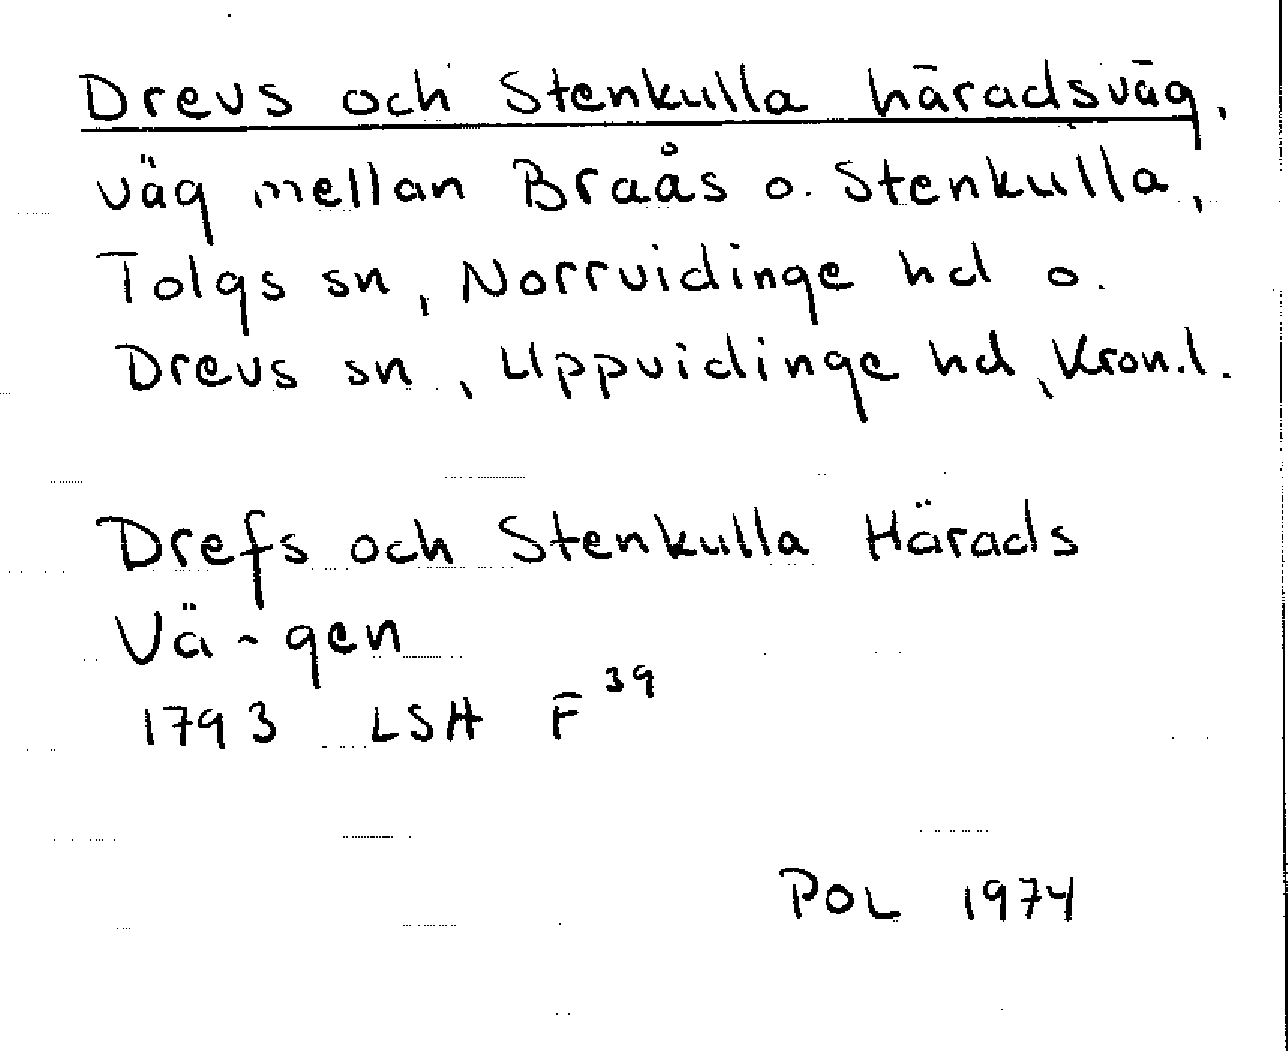 Drevs och Stenkulla häradsväg,
väg mellan Braås o. Stenkulla,
Tolgs sn, Norrvidinge hd o.
Drevs sn, Uppvidinge hd, Kron.l.
Drefs och Stenkulla Härads
Vä-gen
1793 LSH F³⁹
POL 1974